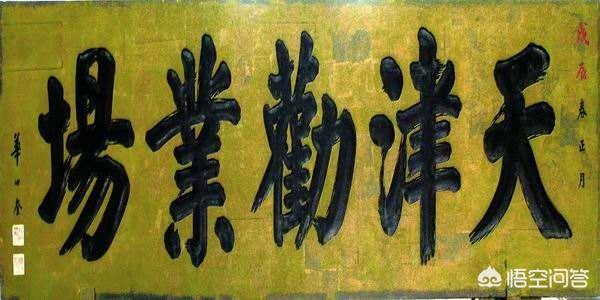 戊辰春正月
天津勸業場
華世奎
悟空问答